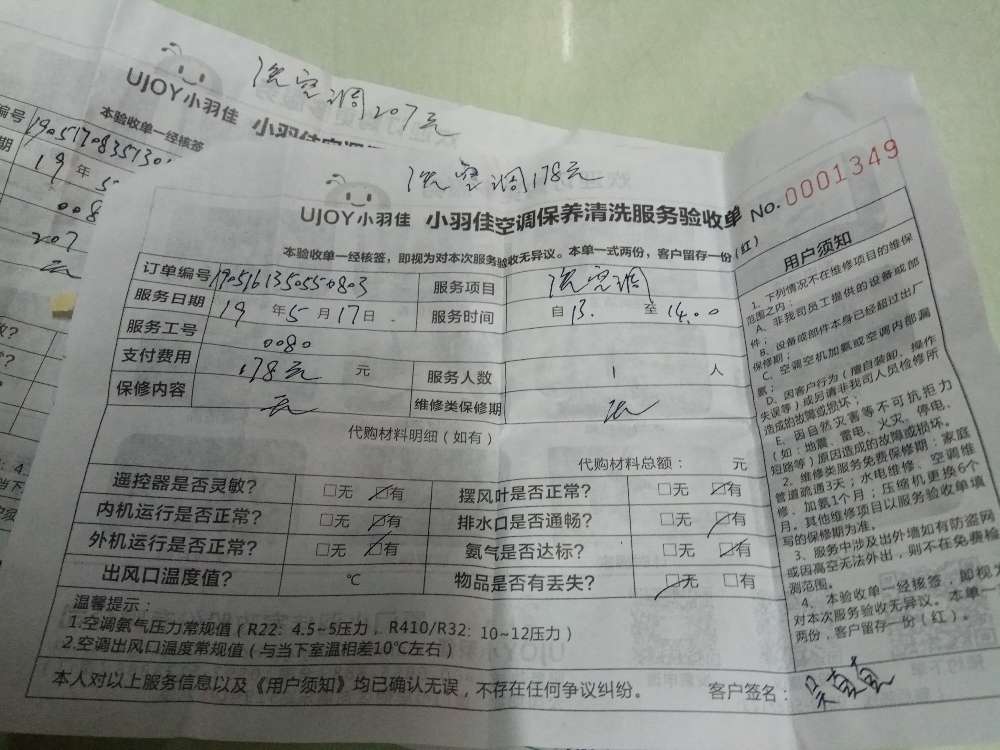 洗空调207元
UJOY小羽佳
本验收单一经核签
编号 1905170835130
19 年 5
008
207
洗空调178元
UJOY小羽佳 小羽佳空调保养清洗服务验收单 No.0001349
本验收单一经核签，即视为对本次服务验收无异议。本单一式两份，客户留存一份（红）
订单编号 1905161350550803 服务项目 洗空调
服务日期 19 年 5 月 17 日 服务时间 自 13. 至 14.00
服务工号 0080
支付费用 178元 元 服务人数 1 人
保修内容 无 维修类保修期 无
代购材料明细（如有）
代购材料总额： 元
遥控器是否灵敏? □无 □有 摆风叶是否正常? □无 □有
内机运行是否正常? □无 □有 排水口是否通畅? □无 □有
外机运行是否正常? □无 □有 氨气是否达标? □无 □有
出风口温度值? ℃ 物品是否有丢失? □无 □有
温馨提示：
1.空调氨气压力常规值（R22: 4.5~5压力，R410/R32: 10~12压力）
2.空调出风口温度常规值（与当下室温相差10℃左右）
本人对以上服务信息以及《用户须知》均已确认无误，不存在任何争议纠纷。 客户签名：
用户须知
1、下列情况不在维修项目的维保
范围之内：
A、非我司员工提供的设备或部
件；
B、设备或部件本身已经超过出厂
保修期；
C、空调空机加氨或空调内部漏
氨；
D、因客户行为（擅自装卸、操作
失误等）或另请非我司人员检修所
造成的故障或损坏；
E、因自然灾害等不可抗拒力
（如：地震、雷电、火灾、停电、
短路等）原因造成的故障或损坏。
2、维修类服务免费保修期：家庭
管道疏通3天；水电维修、空调维
修、加氨1个月；压缩机更换6个
月。其他维修项目以服务验收单填
写的保修期为准。
3、服务中涉及出外墙如有防盗网
或因高空无法外出，则不在免费检
测范围。
4、本验收单一经核签，即视为
对本次服务验收无异议。本单一
两份，客户留存一份（红）。